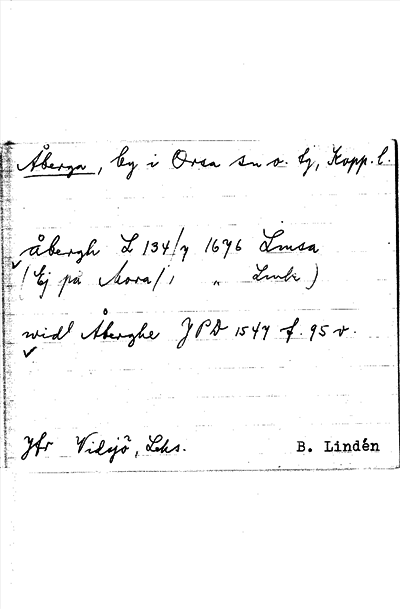 Åberga, by i Orsa sn o. tg, Kopp. l.
åbergh L 134/7 1676 Lmsa
(Ej på Mora/, " Lmk)
widh Åberghe JPD 1547 f. 95 v.
Jfr Vidsjö, Leks.
B. Lindén